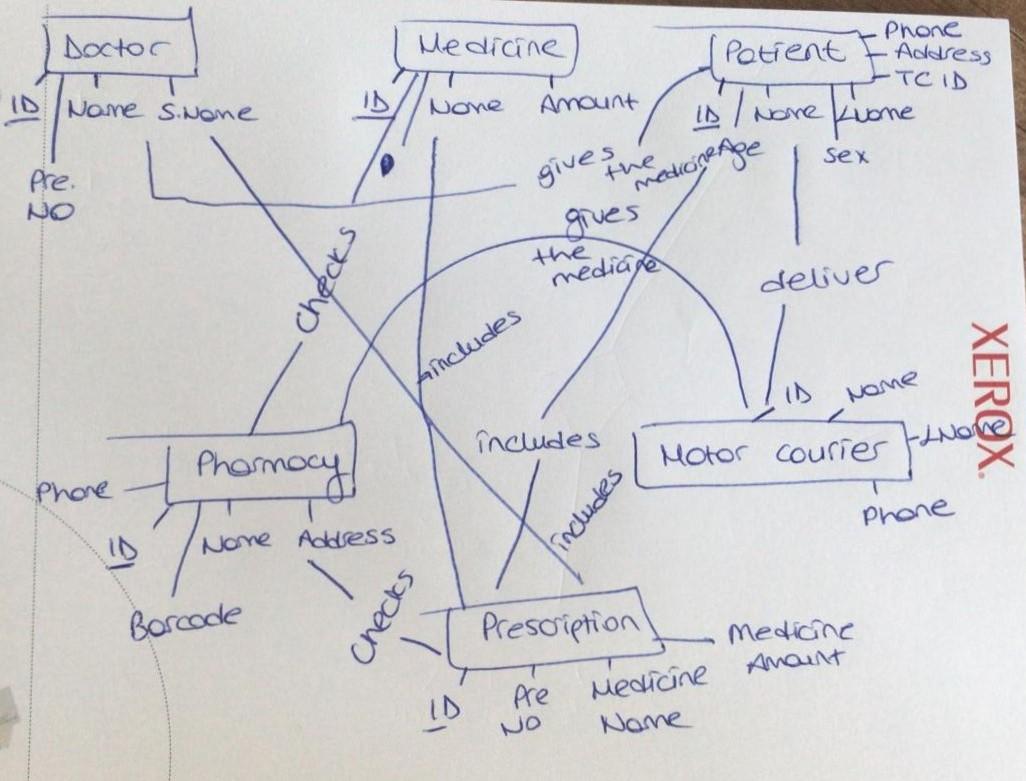 Doctor
ID Name S.Name
Pre.
NO
Medicine
ID Name Amount
Patient
Phone
Address
TC ID
ID Name LName
Age
Sex
gives the medicine
Checks
gives
the
medicine
deliver
includes
includes
includes
Pharmacy
Phone
ID Name Address
Barcode
Checks
Motor courier
ID Name
LName
Phone
XEROX
Prescription
Medicine
Amount
ID Pre Medicine
NO Name